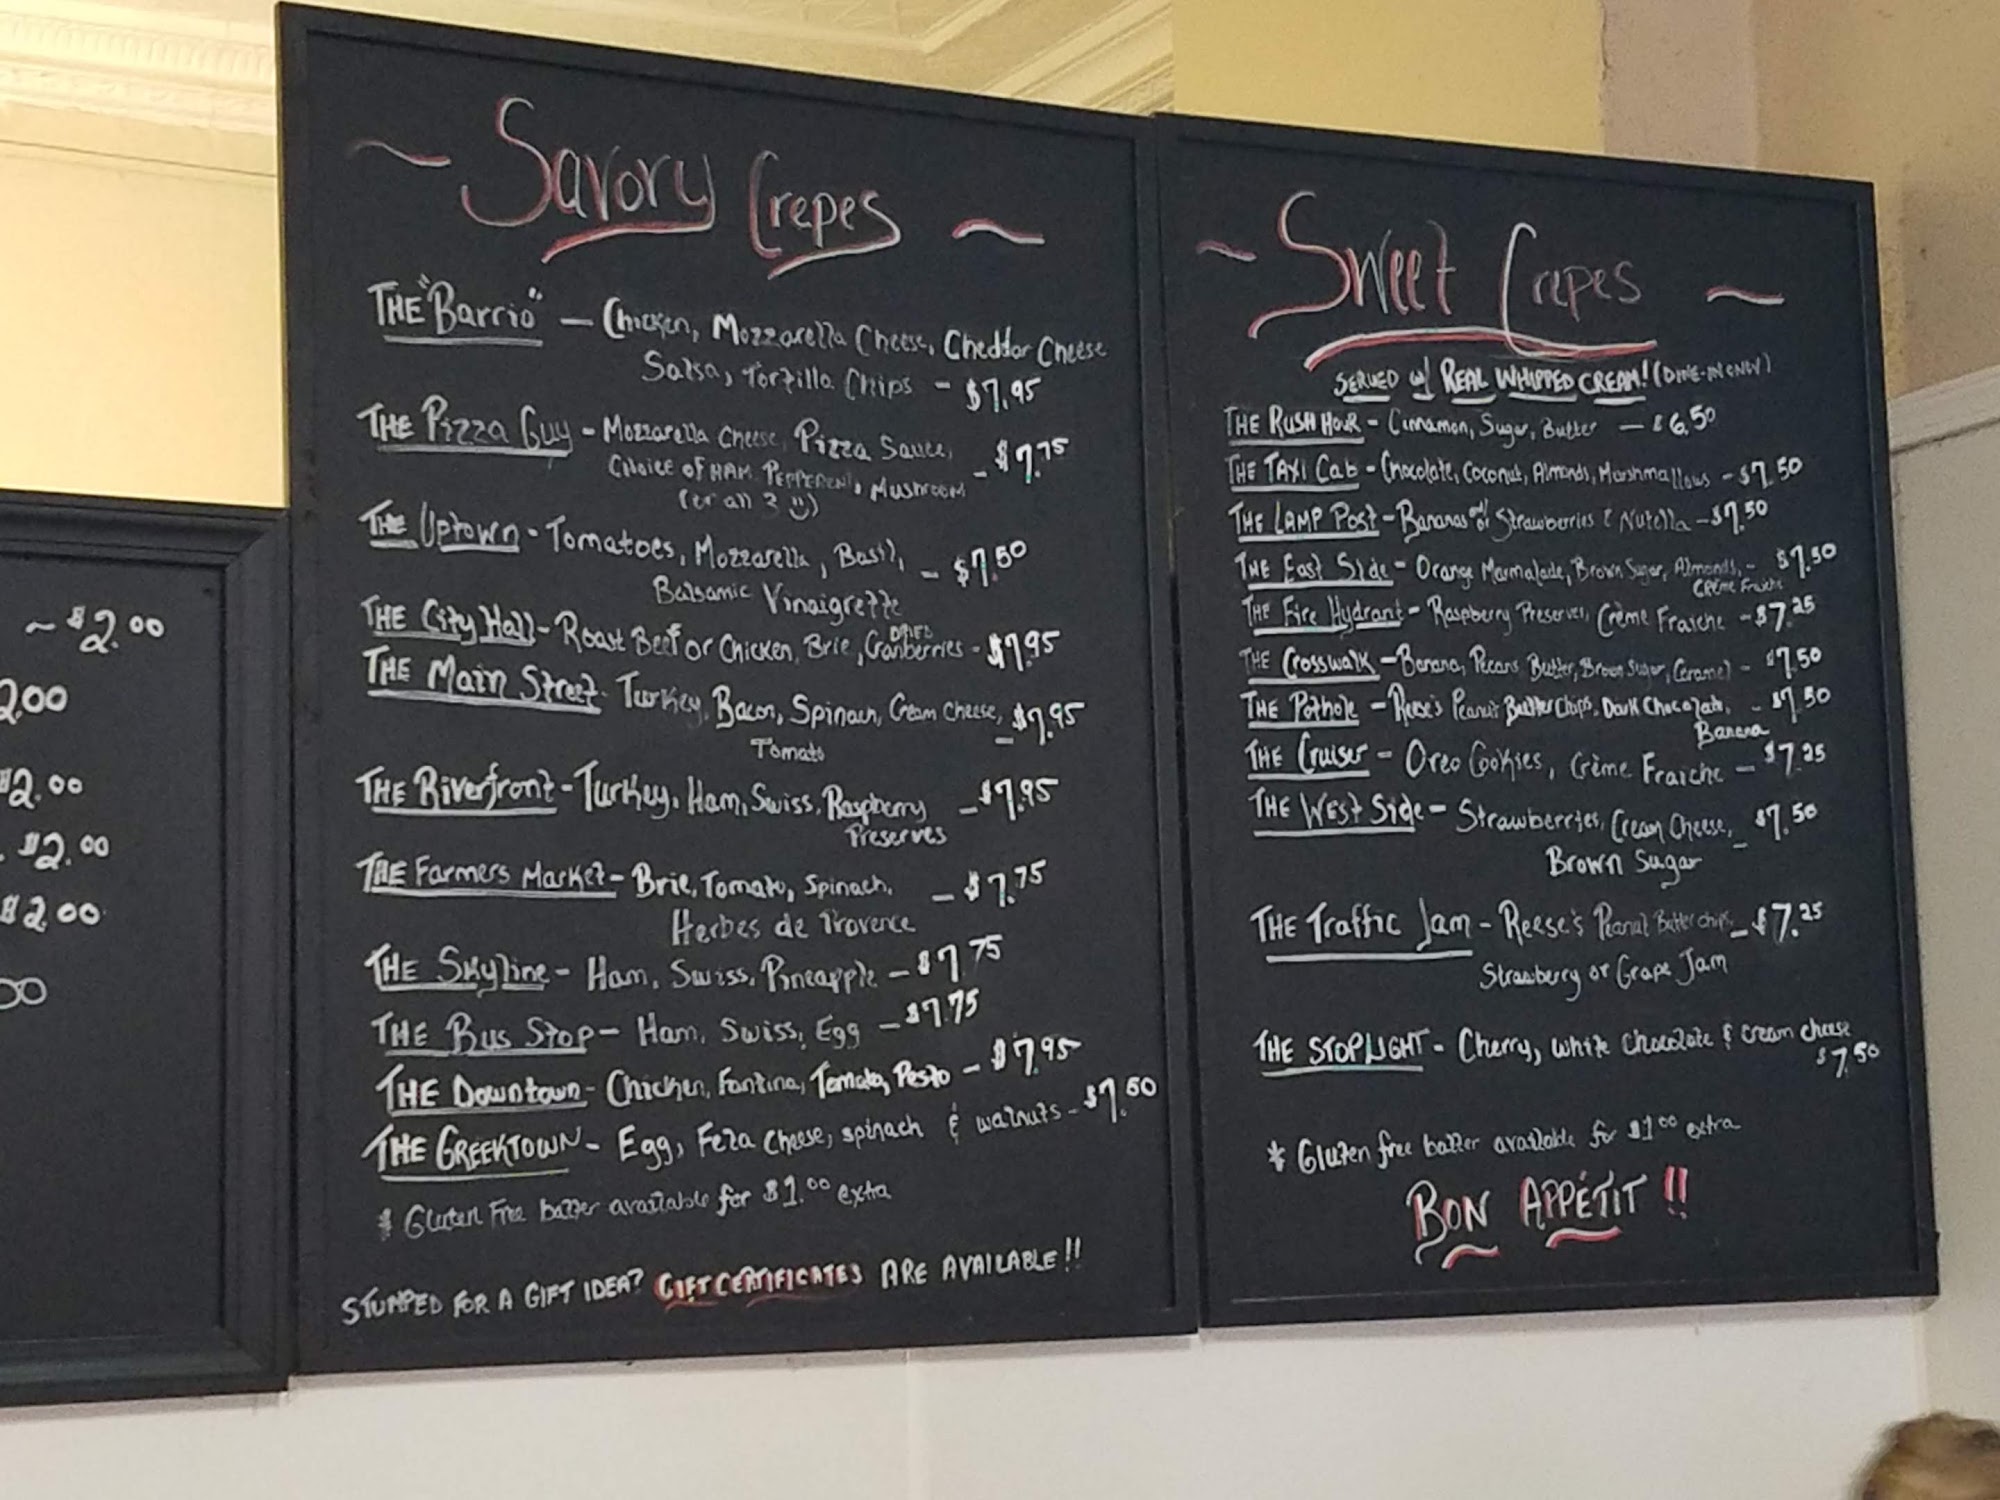 ~ $2.00
2.00
$2.00
$2.00
$2.00
00
~ Savory Crepes ~
THE "Barrio" — Chicken, Mozzarella Cheese, Cheddar Cheese
Salsa, Tortilla Chips - $7.95
THE Pizza Guy - Mozzarella Cheese, Pizza Sauce,
CHOICE OF HAM, PEPPERONI, MUSHROOM - $7.75
(or all 3 :))
THE Uptown - Tomatoes, Mozzarella, Basil,
Balsamic Vinaigrette - $7.50
THE City Hall - Roast Beef or Chicken, Brie, DRIED Cranberries - $7.95
THE Main Street - Turkey, Bacon, Spinach, Cream Cheese,
Tomato - $7.95
THE Riverfront - Turkey, Ham, Swiss, Raspberry - $7.95
Preserves
THE Farmers Market - Brie, Tomato, Spinach, - $7.75
Herbes de Provence
THE Skyline - Ham, Swiss, Pineapple - $7.75
THE Bus Stop - Ham, Swiss, Egg - $7.75
THE Downtown - Chicken, Fontina, Tomato, Pesto - $7.95
THE GREEKTOWN - Egg, Feta cheese, spinach & walnuts - $7.50
* Gluten Free batter available for $1.00 extra
STUMPED FOR A GIFT IDEA? GIFT CERTIFICATES ARE AVAILABLE!!
~ Sweet Crepes ~
SERVED W/ REAL WHIPPED CREAM! (DINE-IN ONLY)
THE RUSH HOUR - Cinnamon, Sugar, Butter — $6.50
THE TAXI Cab - Chocolate, Coconut, Almonds, Marshmallows - $7.50
THE LAMP POST - Bananas and/or Strawberries & Nutella - $7.50
THE East Side - Orange Marmalade, Brown Sugar, Almonds, - $7.50
Crème Fraiche
THE Fire Hydrant - Raspberry Preserves, Crème Fraiche - $7.25
THE Crosswalk - Banana, Pecans, Butter, Brown Sugar, Caramel - $7.50
THE Pothole - Reese's Peanut Butter Chips, Dark Chocolate, - $7.50
Banana
THE Cruiser - Oreo Cookies, Crème Fraiche - $7.25
THE West Side - Strawberries, Cream Cheese, - $7.50
Brown Sugar
THE Traffic Jam - Reese's Peanut Butter chips - $7.25
Strawberry or Grape Jam
THE STOPLIGHT - Cherry, white chocolate & cream cheese
$7.50
* Gluten free batter available for $1.00 extra
BON APPÉTIT!!